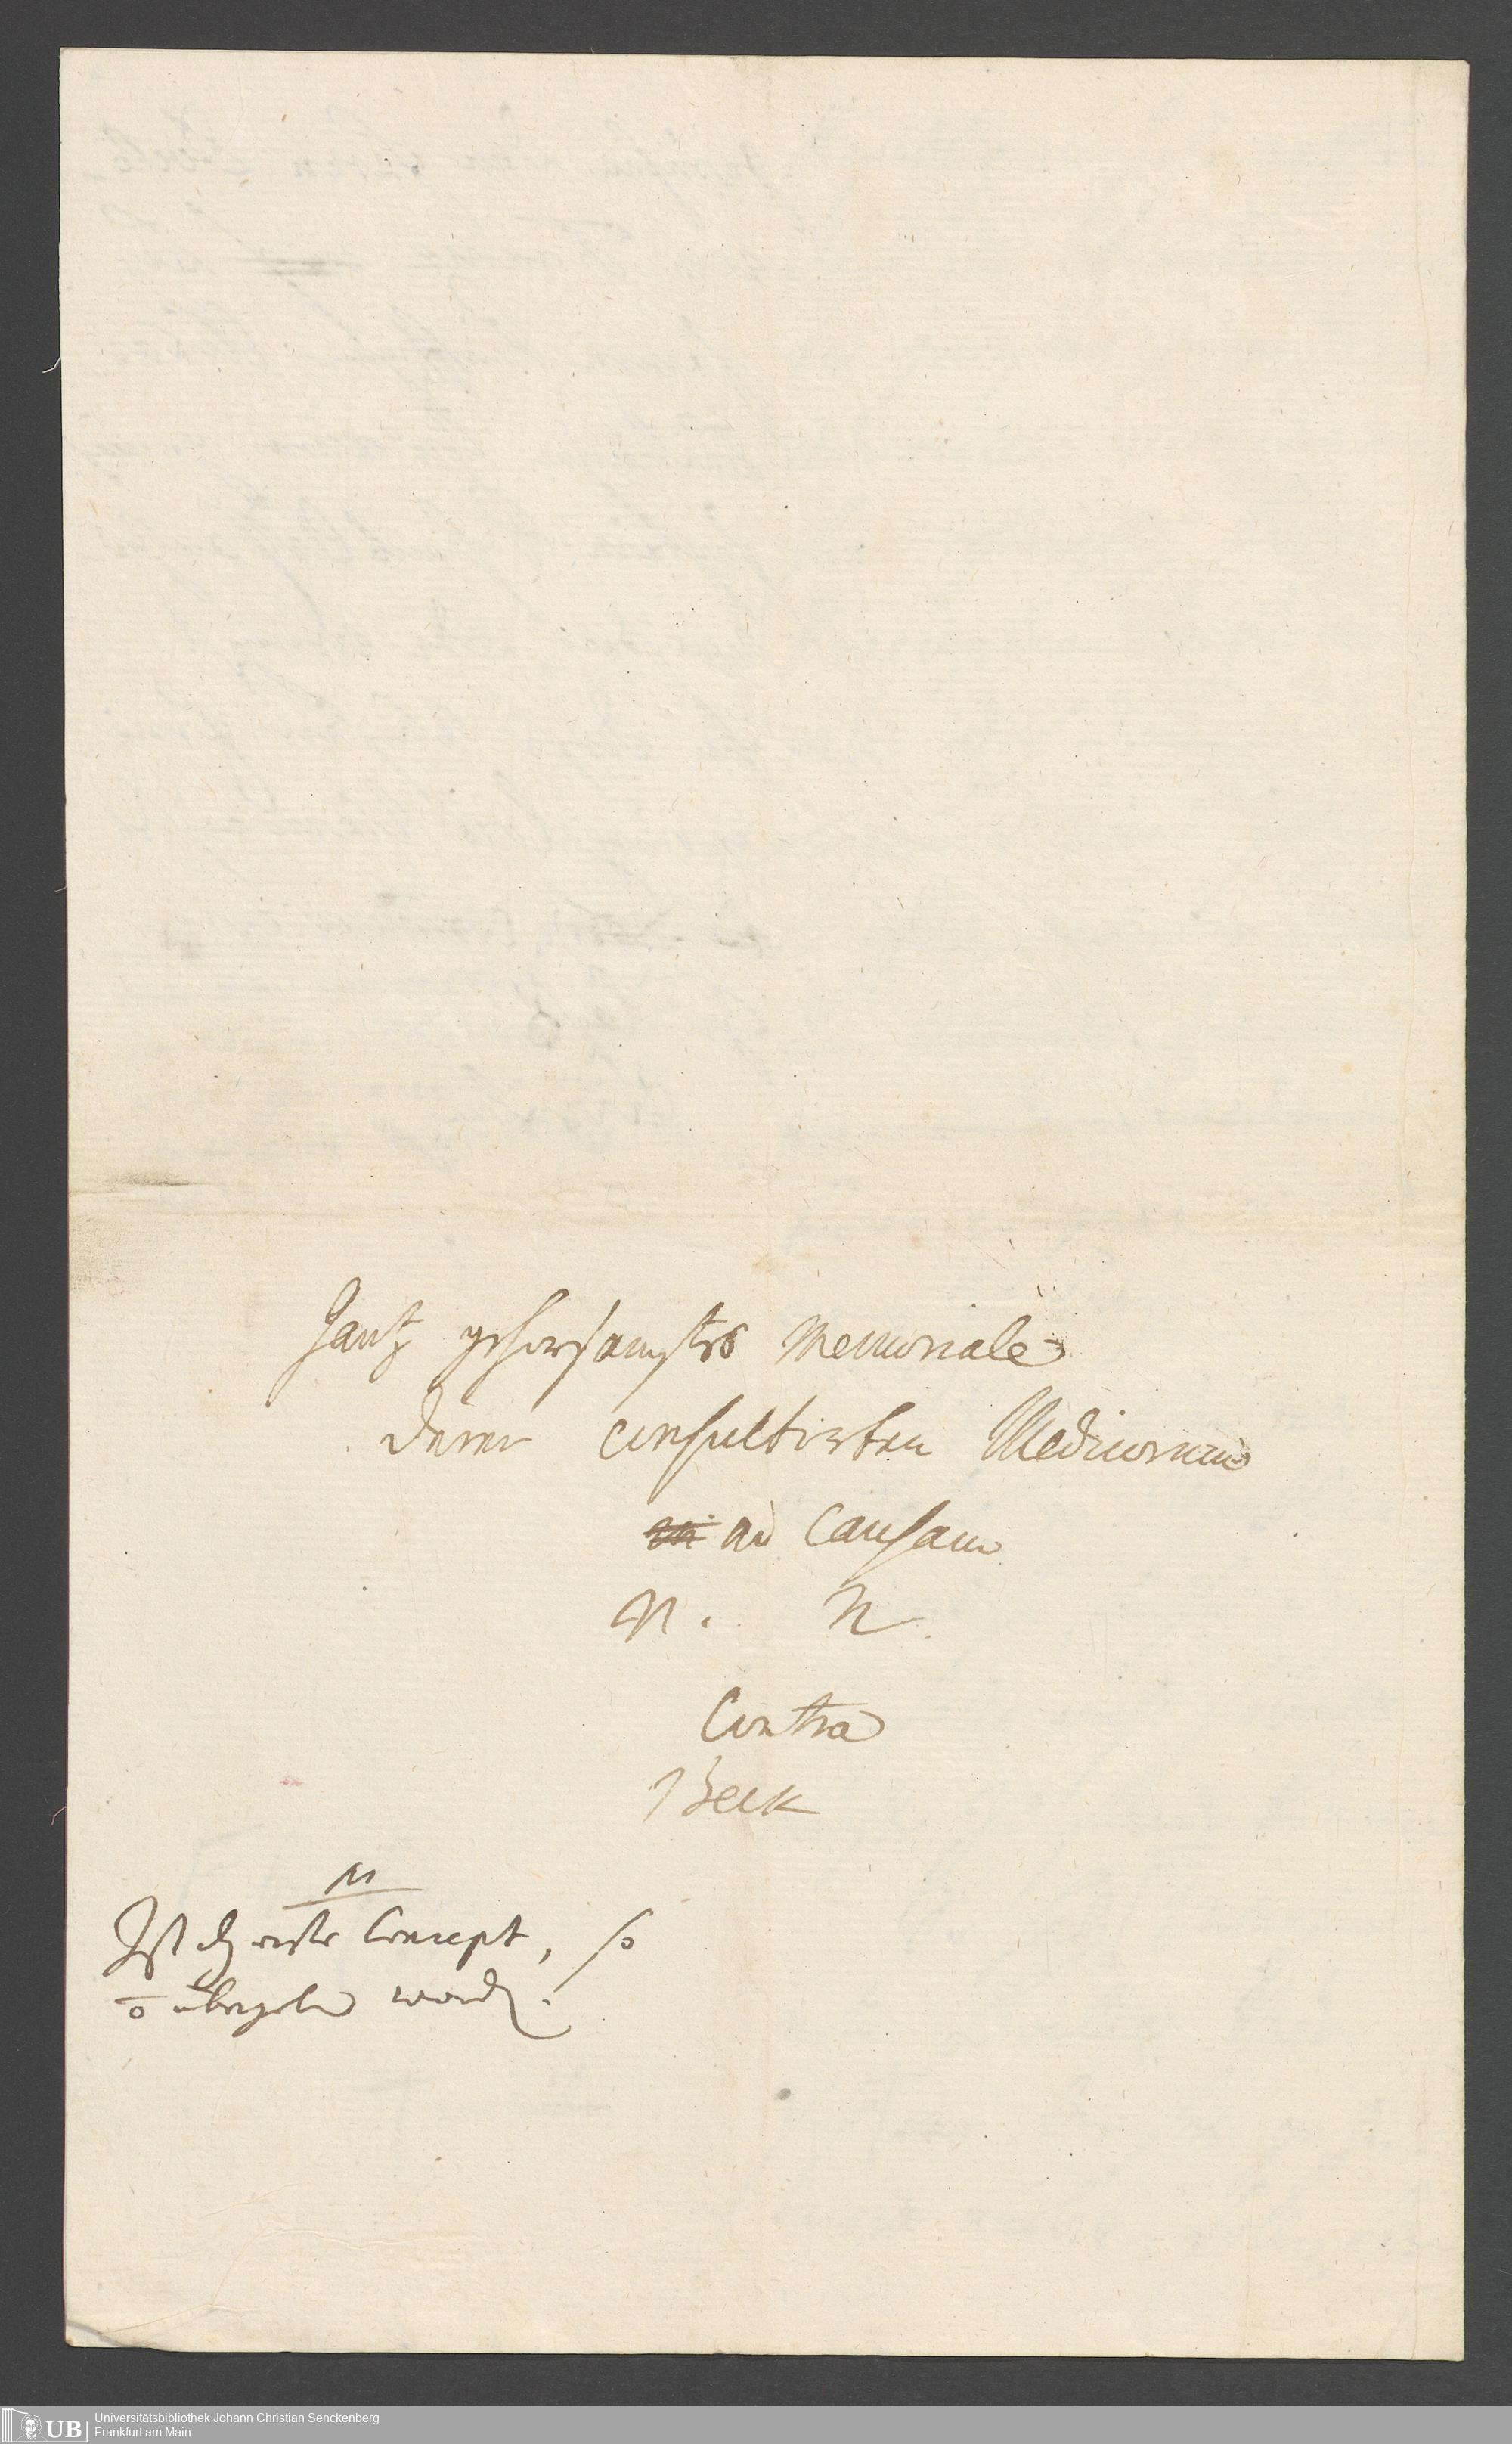 Gantz gehorsamstes Memoriale
derer consultirten Medicorum
ad Causam
N. N.
Contra
Beck
Ist dz erste Concept, so
o übergeben word.
UB
Universitätsbibliothek Johann Christian Senckenberg
Frankfurt am Main